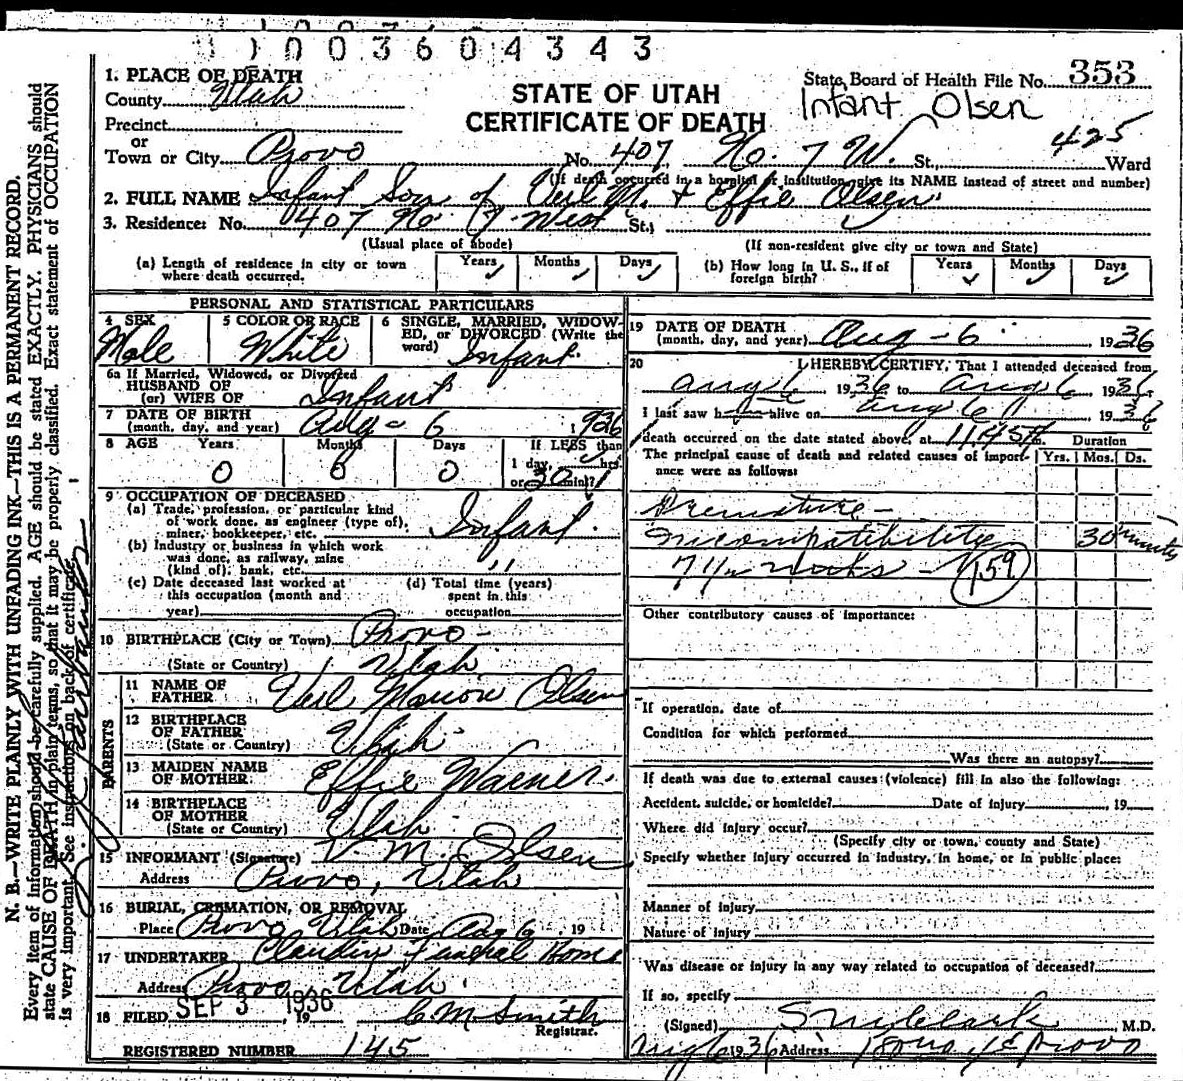 11003604343
1. PLACE OF DEATH
County Utah
Precinct
or
Town or City Provo
STATE OF UTAH
CERTIFICATE OF DEATH
State Board of Health File No. 353
Infant Olsen
425
No. 407 No. 7 W. St. Ward
(If death occurred in a hospital or institution, give its NAME instead of street and number)
2. FULL NAME Infant Son of Verl M. + Effie Olsen
3. Residence: No. 407 No 7 West St.,
(Usual place of abode) (If non-resident give city or town and State)
(a) Length of residence in city or town where death occurred. Years Months Days
(b) How long in U. S., if of foreign birth? Years Months Days
PERSONAL AND STATISTICAL PARTICULARS
4 SEX Male
5 COLOR OR RACE White
6 SINGLE, MARRIED, WIDOWED, or DIVORCED (Write the word) Infant
6a If Married, Widowed, or Divorced
HUSBAND OF
(or) WIFE OF Infant
7 DATE OF BIRTH
(month, day, and year) Aug - 6 1936
8 AGE Years 0 Months 0 Days 0
If LESS than
1 day, hrs.
or 30 min?
9 OCCUPATION OF DECEASED
(a) Trade, profession, or particular kind of work done, as engineer (type of), miner, bookkeeper, etc. Infant
(b) Industry or business in which work was done, as railway, mine (kind of), bank, etc. "
(c) Date deceased last worked at this occupation (month and year)
(d) Total time (years) spent in this occupation
10 BIRTHPLACE (City or Town) Provo -
(State or Country) Utah
PARENTS
11 NAME OF FATHER Verl Marion Olsen
12 BIRTHPLACE OF FATHER
(State or Country) Utah
13 MAIDEN NAME OF MOTHER Effie Warner
14 BIRTHPLACE OF MOTHER
(State or Country) Utah
15 INFORMANT (Signature) V M. Olsen
Address Provo, Utah
16 BURIAL, CREMATION, OR REMOVAL
Place Provo Utah Date Aug 6, 19
17 UNDERTAKER Claudin Funeral Home
Address Provo, Utah
18 FILED SEP 3 1936, 19 C M Smith
Registrar.
REGISTERED NUMBER 145
19 DATE OF DEATH
(month, day, and year) Aug - 6 1936
20 I HEREBY CERTIFY, That I attended deceased from
Aug 6 1936 to Aug 6 1936
I last saw h alive on Aug 6 1936
death occurred on the date stated above, at 11.45 m.
The principal cause of death and related causes of importance were as follows:
Duration
Yrs. Mos. Ds.
Premature -
incompatibility 30 minutes
7 1/2 159
Other contributory causes of importance:
If operation, date of
Condition for which performed
Was there an autopsy?
If death was due to external causes (violence) fill in also the following:
Accident, suicide, or homicide? Date of injury , 19
Where did injury occur?
(Specify city or town, county and State)
Specify whether injury occurred in industry, in home, or in public place:
Manner of injury
Nature of injury
Was disease or injury in any way related to occupation of deceased?
If so, specify
(Signed) Clark, M.D.
Aug 6 1936 Address Provo
N. B.—WRITE PLAINLY WITH UNFADING INK—THIS IS A PERMANENT RECORD.
Every item of information should be carefully supplied. AGE should be stated EXACTLY. PHYSICIANS should
state CAUSE OF DEATH in plain terms, so that it may be properly classified. Exact statement of OCCUPATION
is very important. See instructions on back of certificate.